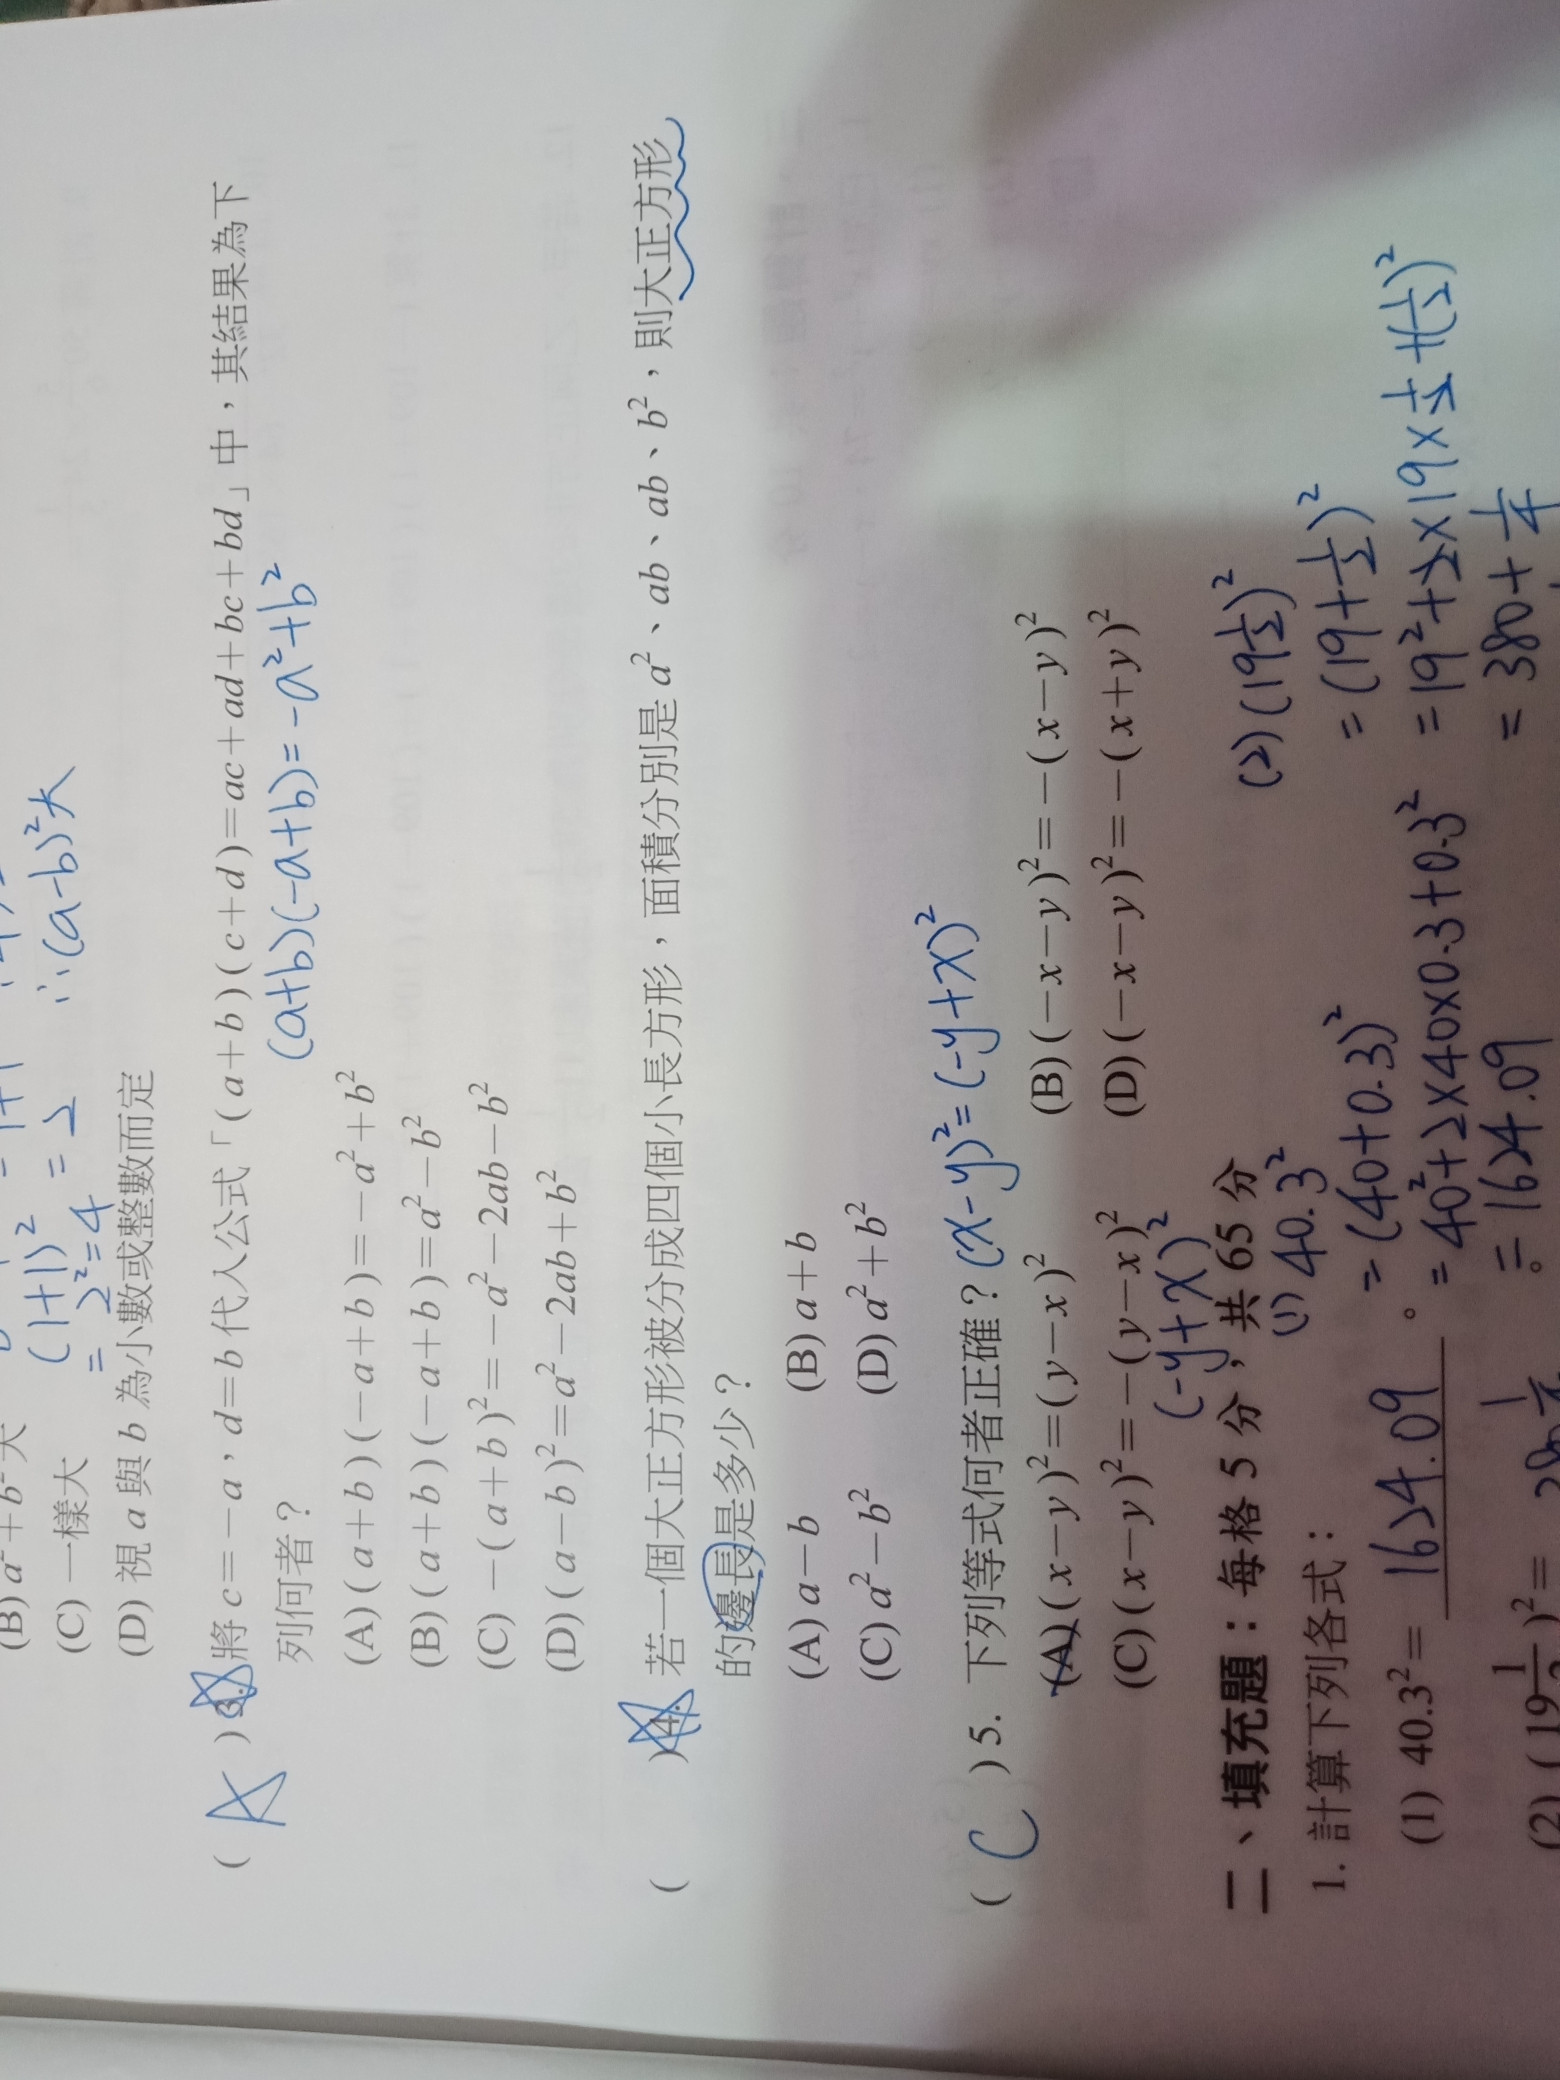 = 1+1
(1+1)²
= 2² = 4
= 2
∴(a-b)²大
(B) a²+b²大
(C) 一樣大
(D) 視 a 與 b 為小數或整數而定
( A )3. 將 c=-a，d=b 代入公式「(a+b)(c+d)=ac+ad+bc+bd」中，其結果為下
列何者？
(a+b)(-a+b)=-a²+b²
(A) (a+b)(-a+b)=-a²+b²
(B) (a+b)(-a+b)=a²-b²
(C) -(a+b)²=-a²-2ab-b²
(D) (a-b)²=a²-2ab+b²
( )4. 若一個大正方形被分成四個小長方形，面積分別是 a²、ab、ab、b²，則大正方形
的邊長是多少？
(A) a-b (B) a+b
(C) a²-b² (D) a²+b²
( C )5. 下列等式何者正確？ (x-y)²=(-y+x)²
(A) (x-y)²=(y-x)² (B) (-x-y)²=-(x-y)²
(C) (x-y)²=-(y-x)² (D) (-x-y)²=-(x+y)²
(-y+x)²
二、填充題：每格 5 分，共 65 分
(1) 40.3²
= (40+0.3)²
= 40²+2×40×0.3+0.3²
= 1624.09
(2) (19½)²
= (19+½)²
= 19²+2×19×½+(½)²
= 380+¼
1. 計算下列各式：
(1) 40.3²= 1624.09 。